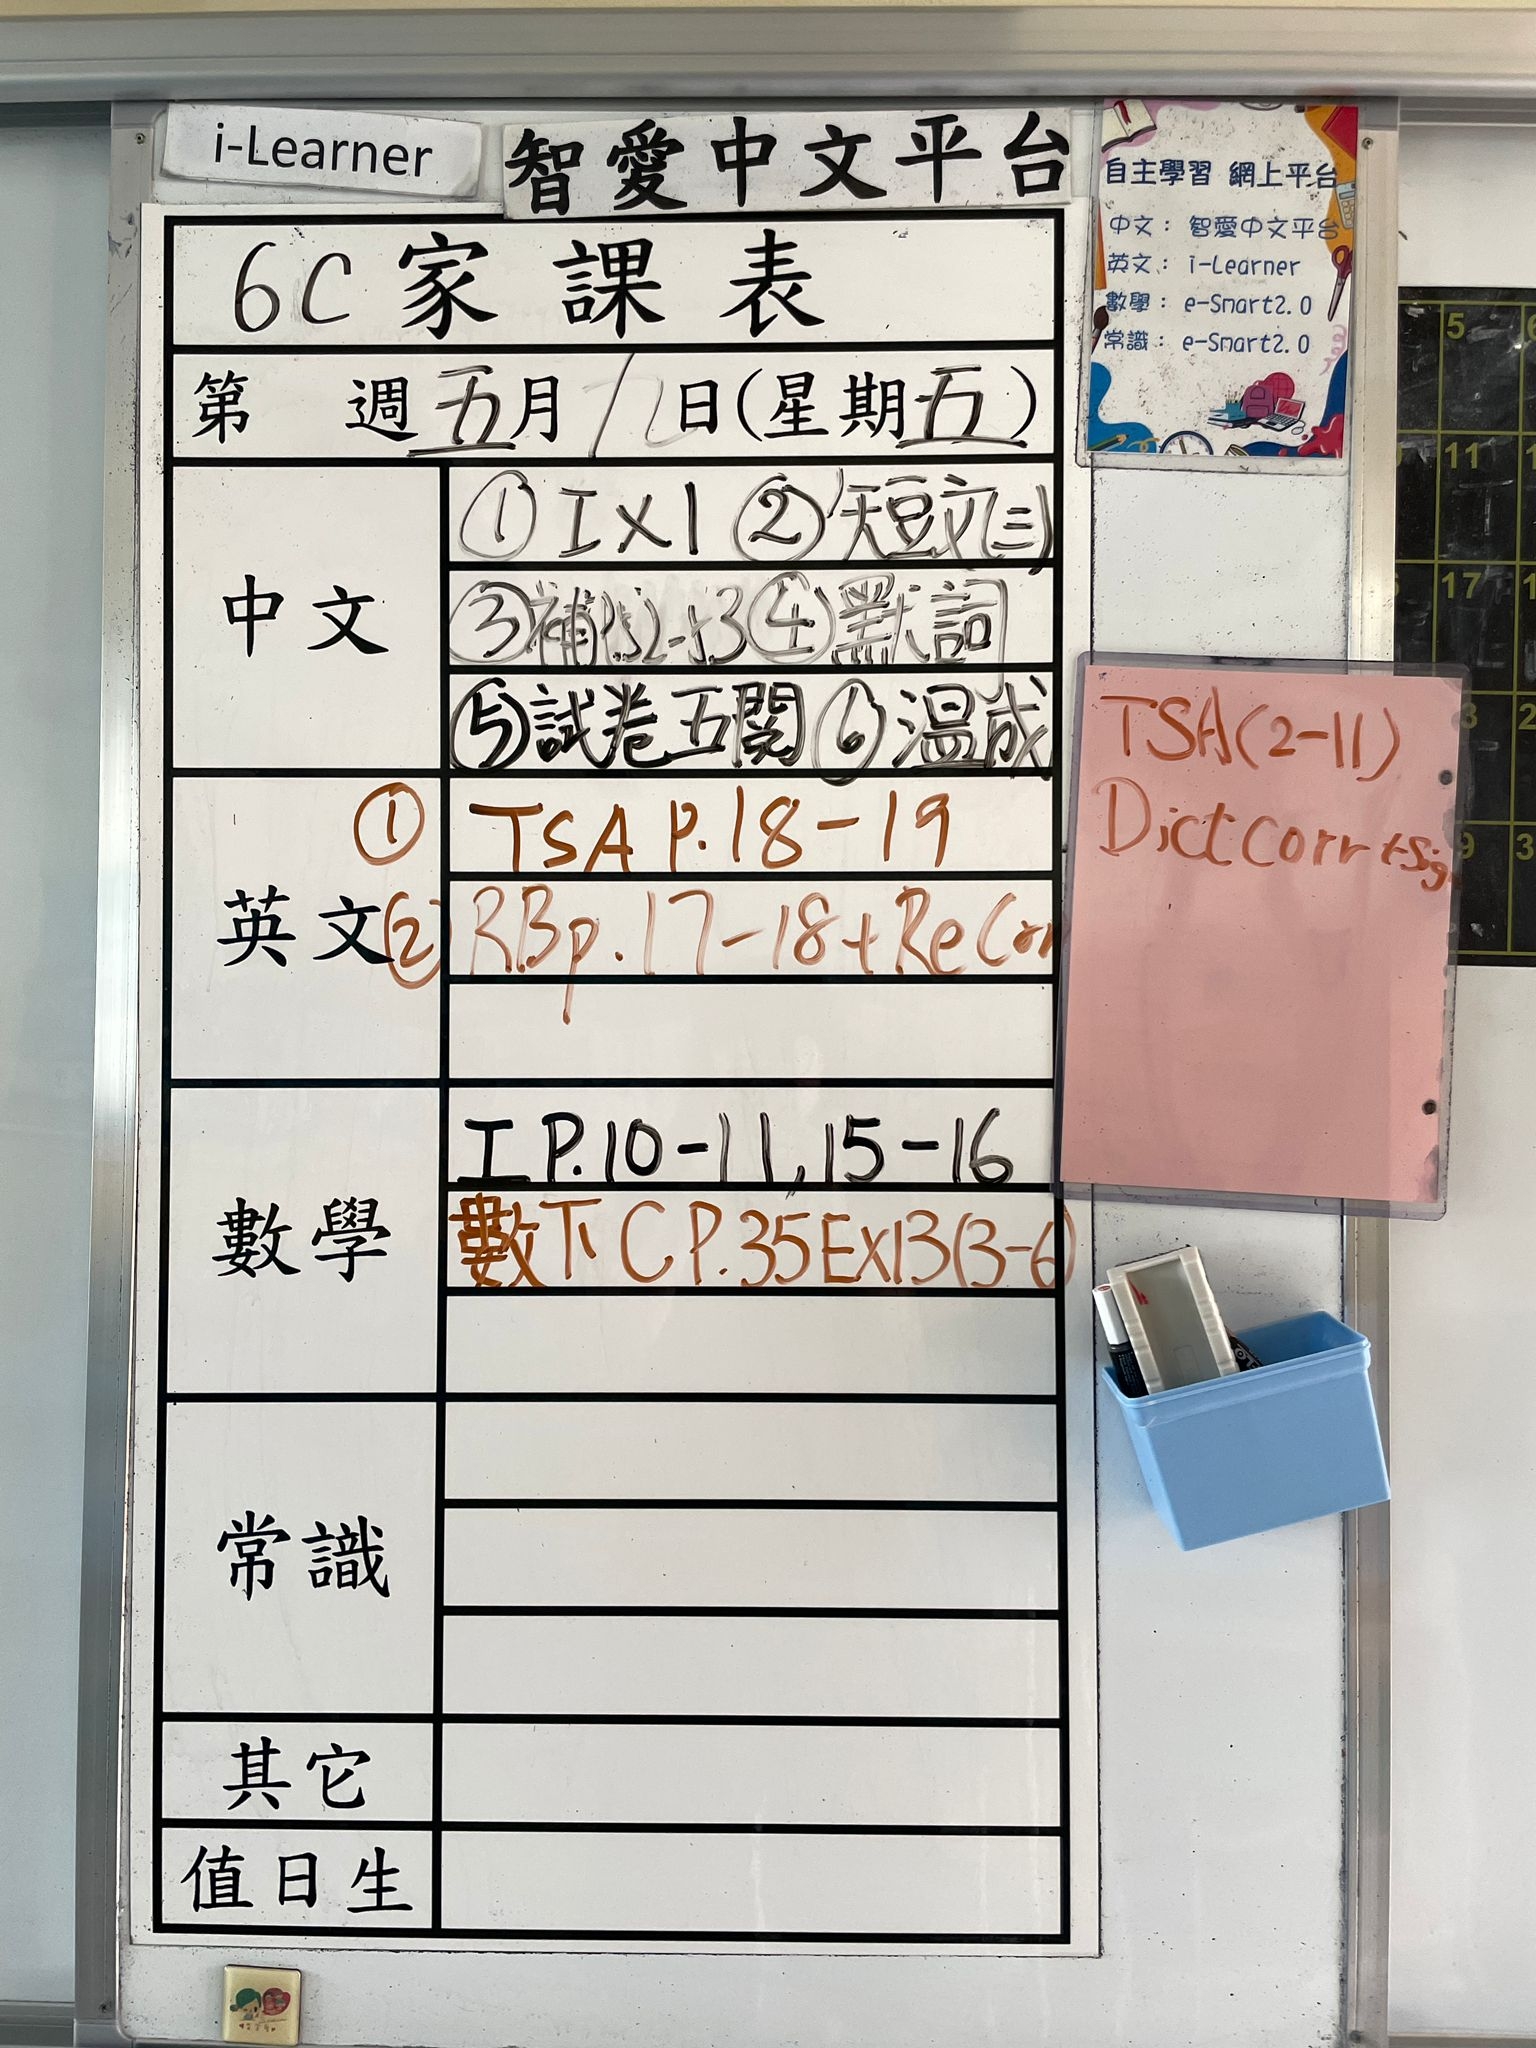 i-Learner
智愛中文平台
自主學習 網上平台
中文： 智愛中文平台
英文： i-Learner
數學： e-Smart2.0
常識： e-Smart2.0
6C家課表
第 週 五月 日(星期五)
中文
① I×1 ② 短文(三)
③補 ④默詞
⑤試卷五閱 ⑥温成
英文
① TSA P.18-19
② RBp.17-18+ReCorr
TSA(2-11)
Dictcorr+Sig
數學
I P.10-11,15-16
數下C P.35Ex13(3-6)
常識
其它
值日生
5
11
17